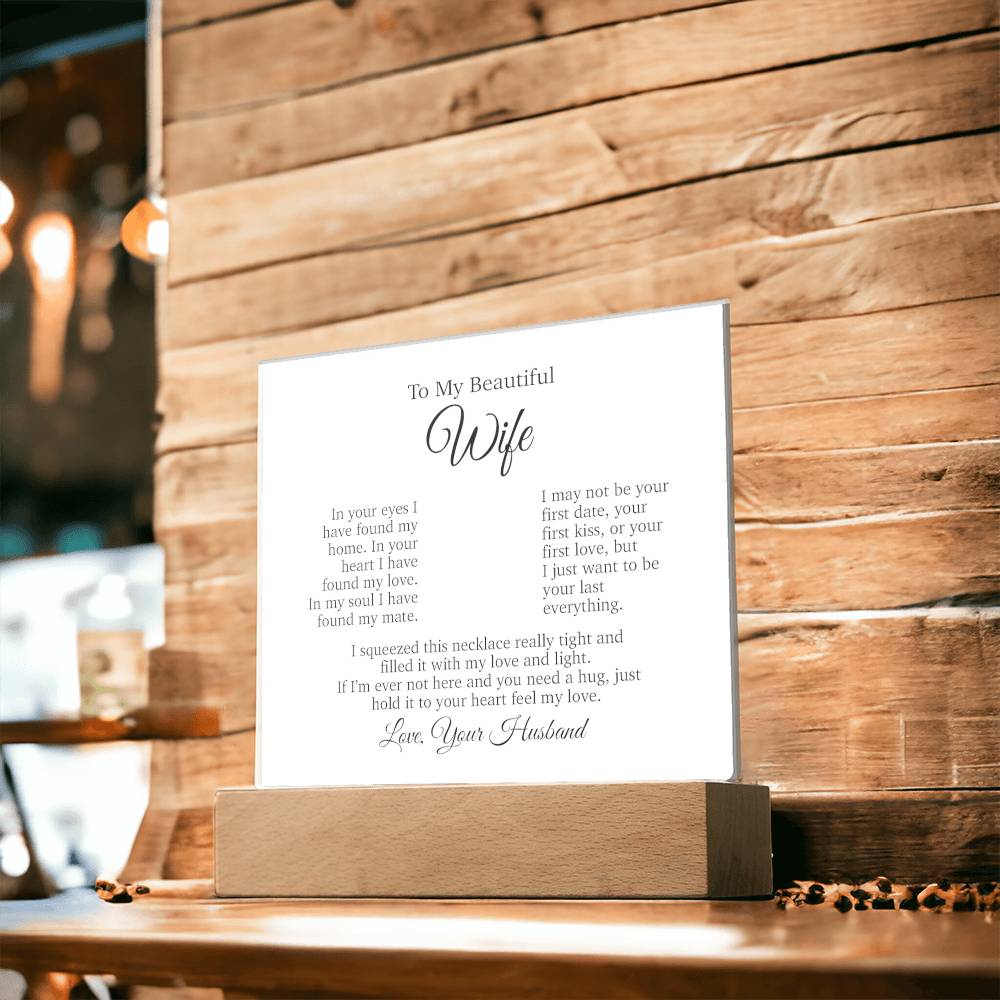 To My Beautiful
Wife
In your eyes I
have found my
home. In your
heart I have
found my love.
In my soul I have
found my mate.
I may not be your
first date, your
first kiss, or your
first love, but
I just want to be
your last
everything.
I squeezed this necklace really tight and
filled it with my love and light.
If I'm ever not here and you need a hug, just
hold it to your heart feel my love.
Love, Your Husband